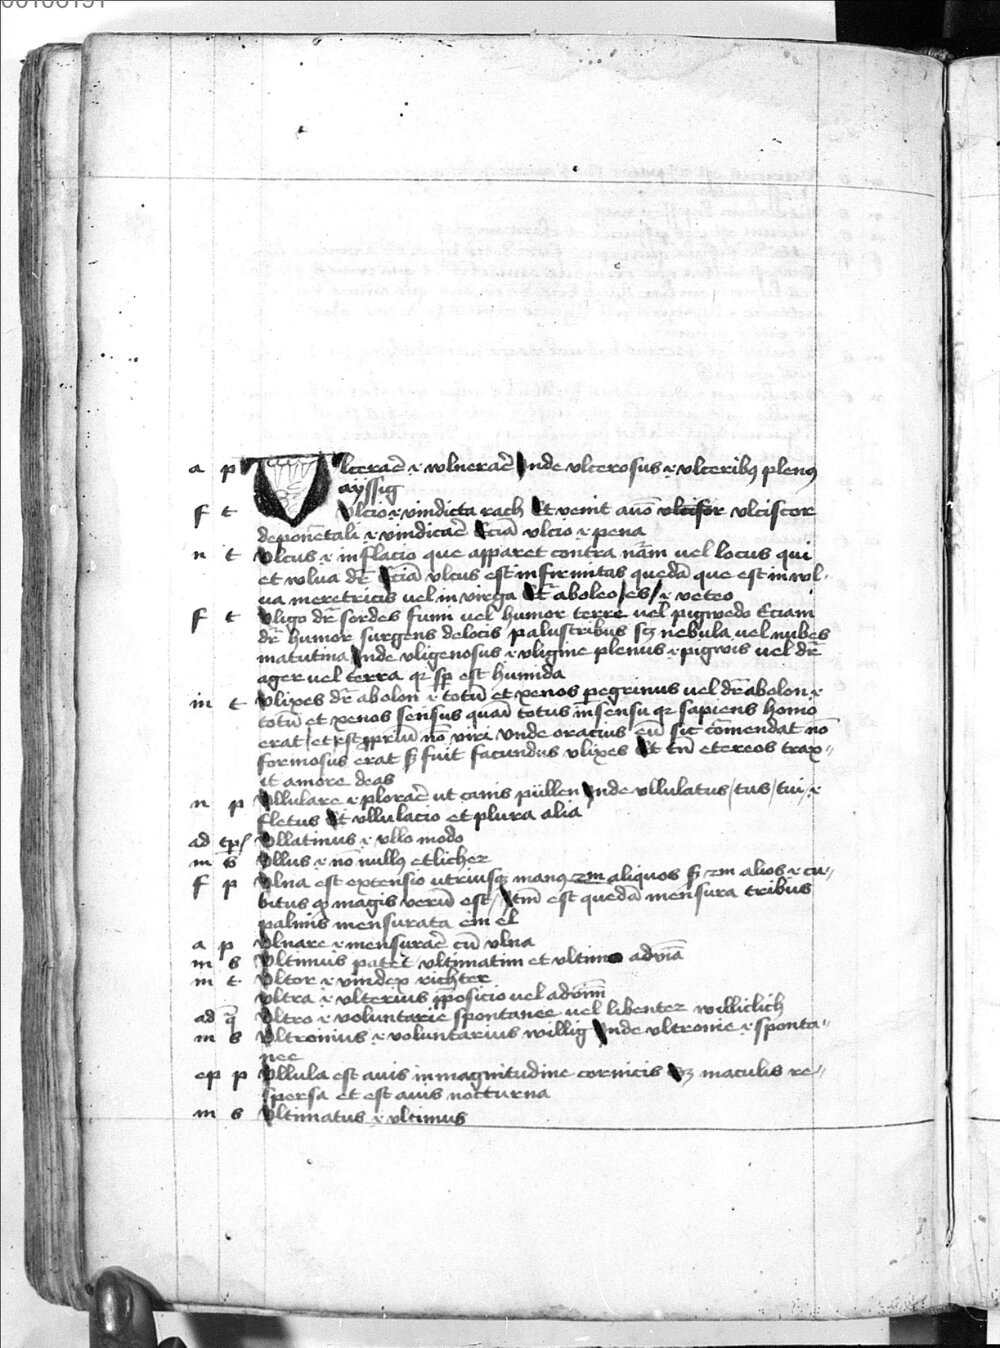 00106191
a p Vlcerac̄ ⁊ wlnerac̄ Inde vlcerosus ⁊ vlceribꝯ plenꝯ
ayssig
f t Vlcio ⁊ vindicta rach Et venit auō vlciscor
deponētali ⁊ vindicac̄ Eciā vlcio ⁊ pena
n t Vlcus ⁊ inflacio que apparet contra nām uel locus qui
et wlua dr̄ Eciā vlcus est infirmitas quedā que est in wl-
ua meretricis uel in virga Et aboleo/es/ ⁊ veteo
f t Vligo dr̄ sordes fumi uel humor terre uel pigwedo Eciam
dr̄ humor surgens de locis palustribus scꝫ nebula uel nubes
matutina Inde vligenosus ⁊ vligine plenus ⁊ pigwis uel dr̄
ager uel terra qꝛ sp̄ est humida
m t Vlixes dr̄ ab olon ⁊ totū et xenos peregrinus uel dr̄ ab olon ⁊
totū et xenos sensus quasi totus in sensu qꝛ sapiens homo
erat/et est ꝓpriū nō viri Vnde oracius eū sic comendat nō
formosus erat sꝫ fuit facundus vlixes Et tn̄ etereos trax-
it amore deas
n p Vllulare ⁊ plorac̄ ut canis püllen Inde vllulatus/tus/tui/⁊
fletus Et vllulacio et plura alia
ad Vllatinus ⁊ vllo modo
m s Vllus ⁊ nō nullꝯ etlicher
f p Vlna est extensio utriusqꝫ manꝯ 2m aliquos sꝫ 2m alios ⁊ cu-
bitus qꝫ magis verū est/ tn̄ est quedā mensura tribus
palmis mensurata ein el
a p Vlnare ⁊ mensurac̄ cū vlna
m s Vltimus patet vltimatim et vltimo aduīa
m t Vltor ⁊ vindex richter
Vltra ⁊ vlterius p̄posicio uel aduīm
ad q̄ Vltro ⁊ voluntarie spontanee uel libenter williclich
m s Vltronius ⁊ voluntarius willig Inde vltronie ⁊ sponta-
nee
ep p Vllula est auis in magnitudine cornicis maculis re-
spersa et est auis nocturna
m s Vltimatus ⁊ vltimus